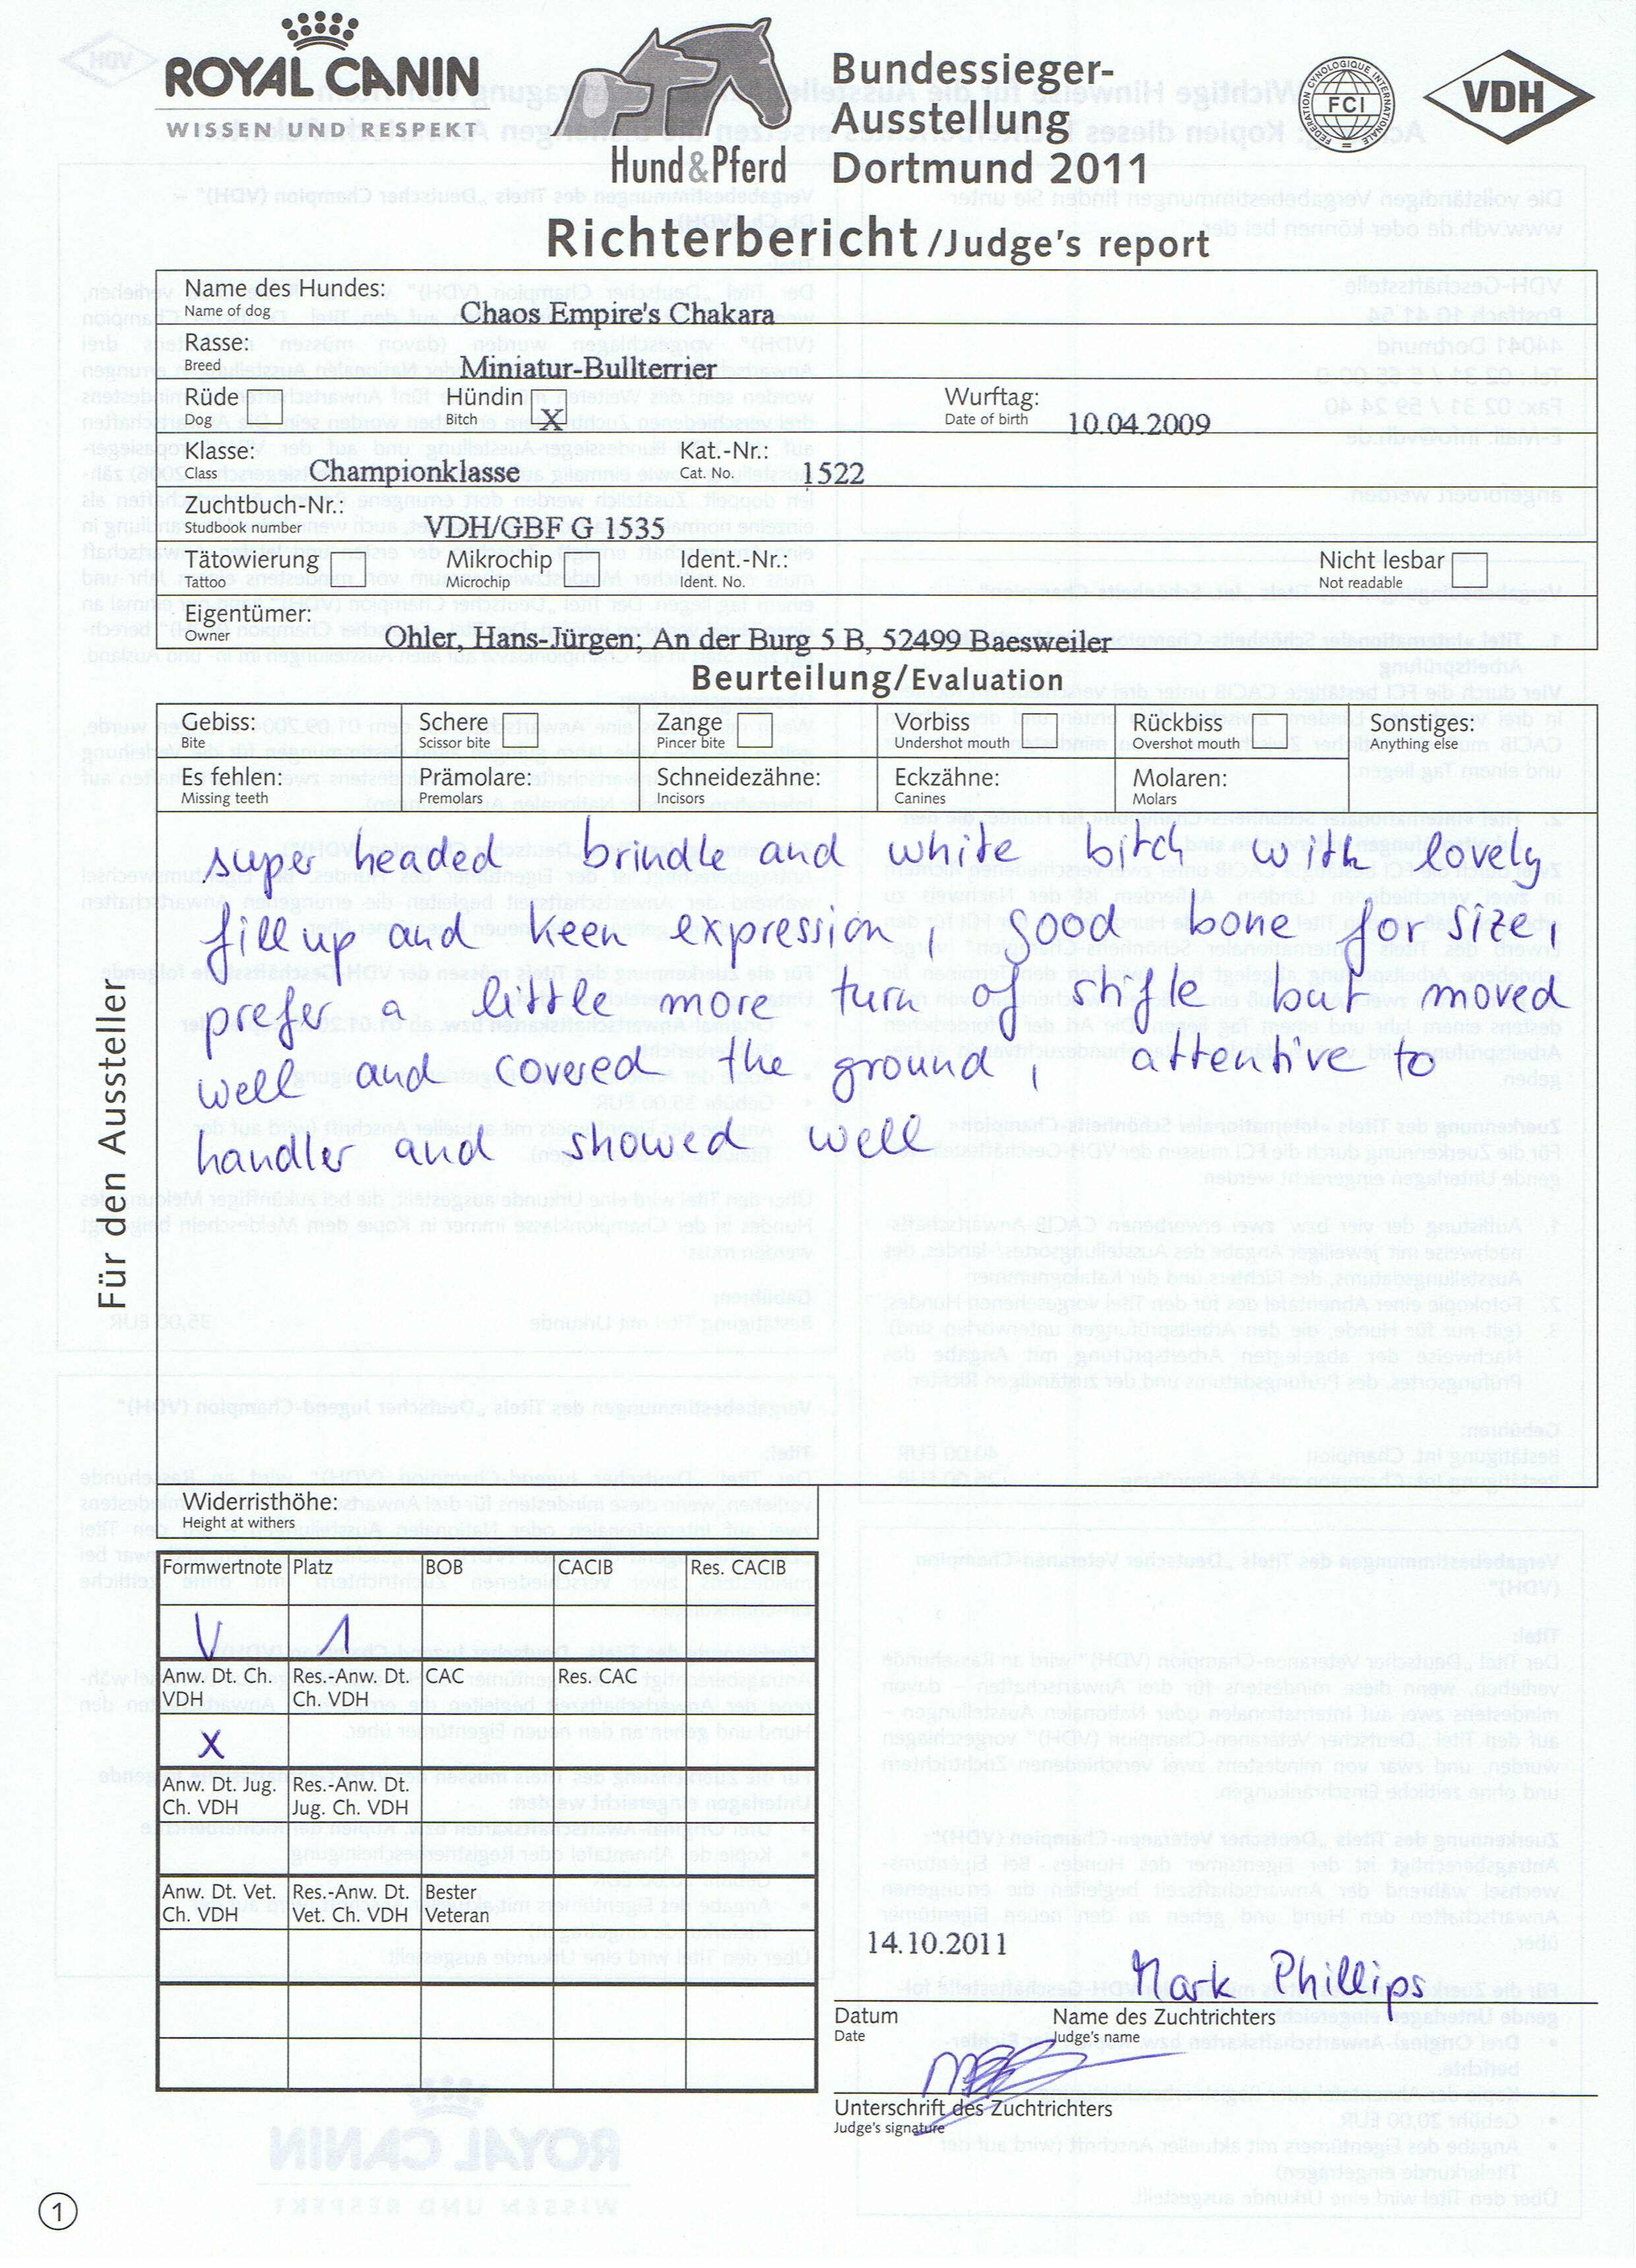 ROYAL CANIN
WISSEN UND RESPEKT
Hund&Pferd
Bundessieger-
Ausstellung
Dortmund 2011
FEDERATION CYNOLOGIQUE INTERNATIONALE
FCI
VDH
Richterbericht/Judge's report
Name des Hundes:
Name of dog
Chaos Empire's Chakara
Rasse:
Breed
Miniatur-Bullterrier
Rüde
Dog
Hündin
Bitch
X
Wurftag:
Date of birth
10.04.2009
Klasse:
Class
Championklasse
Kat.-Nr.:
Cat. No.
1522
Zuchtbuch-Nr.:
Studbook number
VDH/GBF G 1535
Tätowierung
Tattoo
Mikrochip
Microchip
Ident.-Nr.:
Ident. No.
Nicht lesbar
Not readable
Eigentümer:
Owner
Ohler, Hans-Jürgen; An der Burg 5 B, 52499 Baesweiler
Beurteilung/Evaluation
Gebiss:
Bite
Schere
Scissor bite
Zange
Pincer bite
Vorbiss
Undershot mouth
Rückbiss
Overshot mouth
Sonstiges:
Anything else
Es fehlen:
Missing teeth
Prämolare:
Premolars
Schneidezähne:
Incisors
Eckzähne:
Canines
Molaren:
Molars
super headed brindle and white bitch with lovely
fill up and keen expression, good bone for size,
prefer a little more turn of stifle but moved
well and covered the ground, attentive to
handler and showed well
Für den Aussteller
Widerristhöhe:
Height at withers
Formwertnote Platz BOB CACIB Res. CACIB
V 1
Anw. Dt. Ch. VDH Res.-Anw. Dt. Ch. VDH CAC Res. CAC
X
Anw. Dt. Jug. Ch. VDH Res.-Anw. Dt. Jug. Ch. VDH
Anw. Dt. Vet. Ch. VDH Res.-Anw. Dt. Vet. Ch. VDH Bester Veteran
14.10.2011
Mark Phillips
Datum
Date
Name des Zuchtrichters
Judge's name
Unterschrift des Zuchtrichters
Judge's signature
1